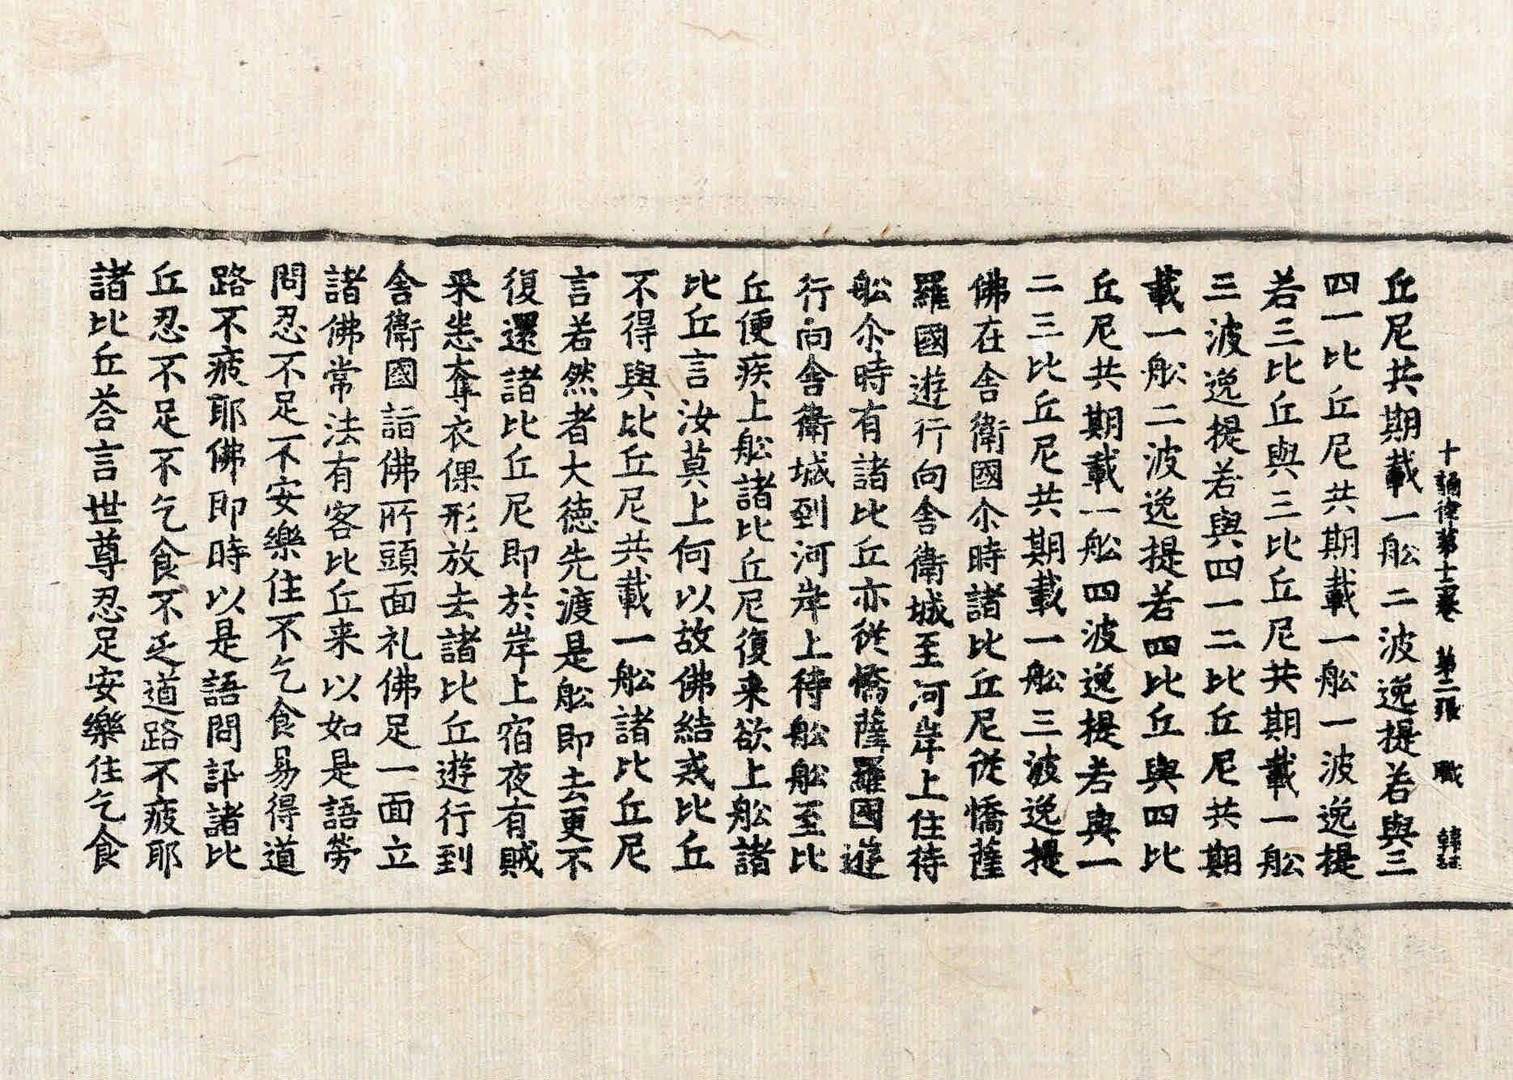 十誦律第十二卷　第二張　職
丘尼共期載一舩二波逸提若與三
四一比丘尼共期載一舩一波逸提
若三比丘與三比丘尼共期載一舩
三波逸提若與四一二比丘尼共期
載一舩二波逸提若四比丘與四比
丘尼共期載一舩四波逸提若與一
二三比丘尼共期載一舩三波逸提
佛在舍衛國尒時諸比丘尼從憍薩
羅國遊行向舍衛城至河岸上住待
舩尒時有諸比丘亦從憍薩羅國遊
行向舍衛城到河岸上待舩舩至比
丘便疾上舩諸比丘尼復來欲上舩諸
比丘言汝莫上何以故佛結戒比丘
不得與比丘尼共載一舩諸比丘尼
言若然者大德先渡是舩即去更不
復還諸比丘尼即於岸上宿夜有賊
來悉奪衣倮形放去諸比丘遊行到
舍衛國詣佛所頭面礼佛足一面立
諸佛常法有客比丘来以如是語勞
問忍不足不安樂住不乞食易得道
路不疲耶佛即時以是語問訊諸比
丘忍不足不乞食不乏道路不疲耶
諸比丘荅言世尊忍足安樂住乞食